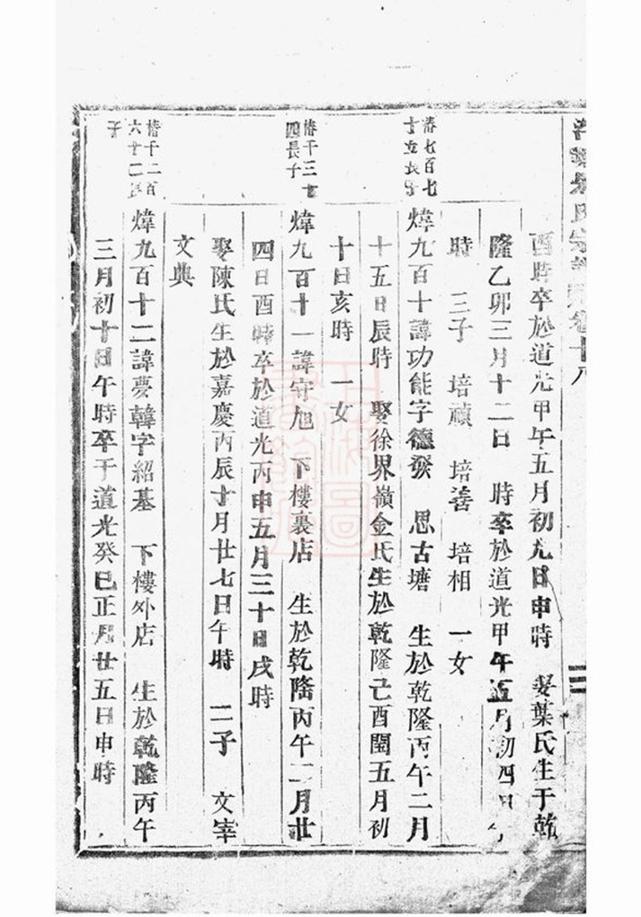 氏宗譜 卷十八
酉時卒於道光甲午五月初九日申時 娶葉氏生于乾
隆乙卯三月十二日 時卒於道光甲午五月初四日午
時 三子 培禎 培善 培相 一女
椿七百七
十五長子
煒九百十諱功能字德發 思古塘 生於乾隆丙午二月
十五日辰時 娶徐界嶺金氏生於乾隆己酉閏五月初
十日亥時 一女
椿千三十
四長子
煒九百十一諱守旭 下樓裏店 生於乾隆丙午二月廿
四日酉時卒於道光丙申五月三十日戌時
娶陳氏生於嘉慶丙辰十月廿七日午時 二子 文宰
文典
椿千二百
六十二長
子
煒九百十二諱夢韓字紹基 下樓外店 生於乾隆丙午
三月初十日午時卒于道光癸巳正月廿五日申時